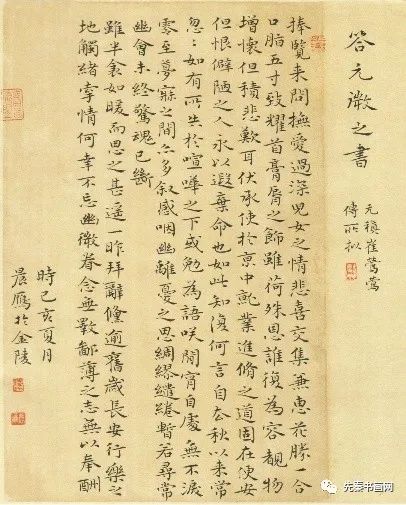 答元微之書
元稹崔鶯鶯
傳所拟
捧覽来問撫愛過深兒女之情悲喜交集兼惠花勝一合
口脂五寸致耀首膏脣之飾雖荷殊恩誰復為容覩物
增懷但積悲歎耳伏承使於京中就業進脩之道固在便安
但恨僻陋之人永以遐棄命也如此知復何言自去秋以来常
忽忽如有所失於喧嘩之下或勉為語咲閒宵自處無不淚
零至夢寐之間亦多叙感咽幽離憂之思綢繆繾綣暫若尋常
幽會未終驚魂已斷
雖半衾如暖而思之甚遥一昨拜辭倏逾舊歲長安行樂之
地觸緒牽情何幸不忘幽微眷念無斁鄙薄之志無以奉酬
時己亥夏月
晨雁於金陵
先秦书画网